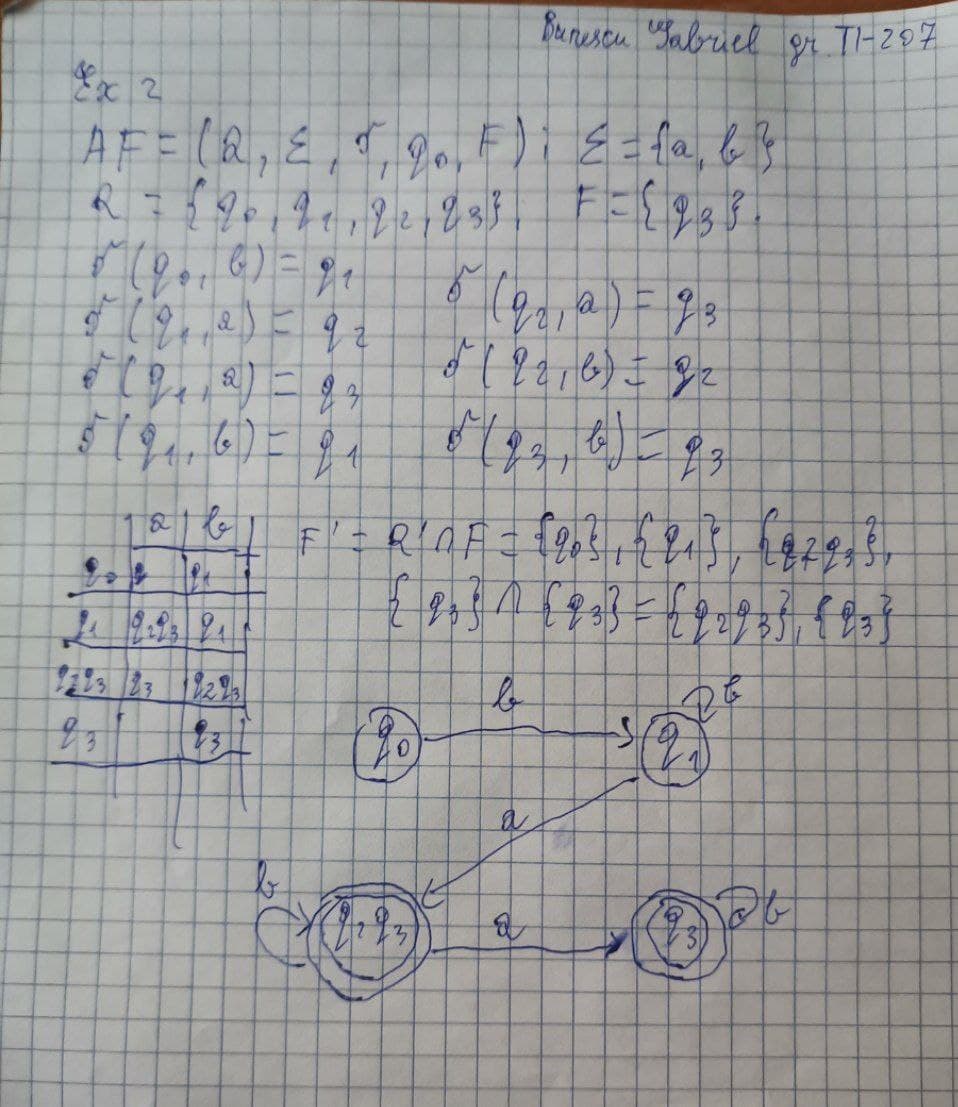 Bunescu Gabriel gr. TI-207
Ex 2
AF = (Q, Σ, δ, q₀, F); Σ = {a, b}
Q = {q₀, q₁, q₂, q₃}, F = {q₃}.
δ(q₀, b) = q₁
δ(q₁, a) = q₂
δ(q₁, a) = q₃
δ(q₁, b) = q₁
δ(q₂, a) = q₃
δ(q₂, b) = q₂
δ(q₃, b) = q₃
a b
q₀ q₁
q₁ q₂q₃ q₁
q₂q₃ q₃ q₂q₃
q₃ q₃
F' = Q' ∩ F = {q₀}, {q₁}, {q₂q₃},
{q₃} ∩ {q₃} = {q₂q₃}, {q₃}
q₀ b q₁ b
a
b q₂q₃ a q₃ b